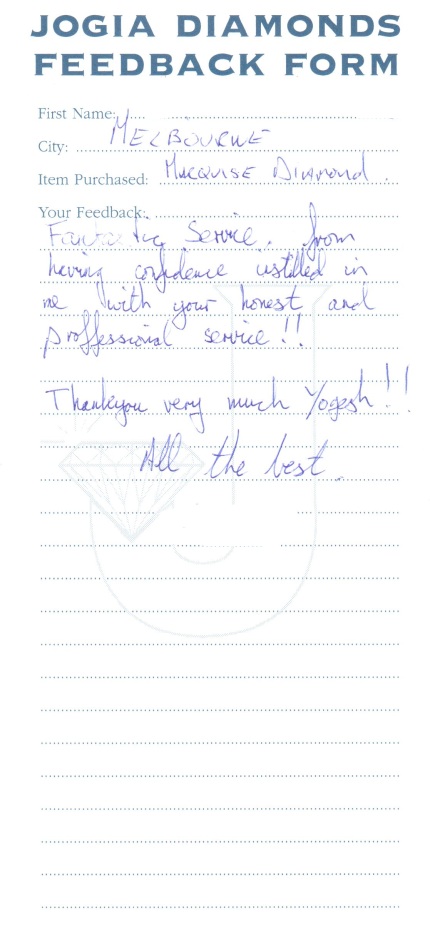 JOGIA DIAMONDS
FEEDBACK FORM
First Name:
City: MELBOURNE
Item Purchased: MARQUISE DIAMOND.
Your Feedback:
Fantastic Service, from
having confidence instilled in
me with your honest and
proffessional service!!
Thankyou very much Yogesh!!
All the best.